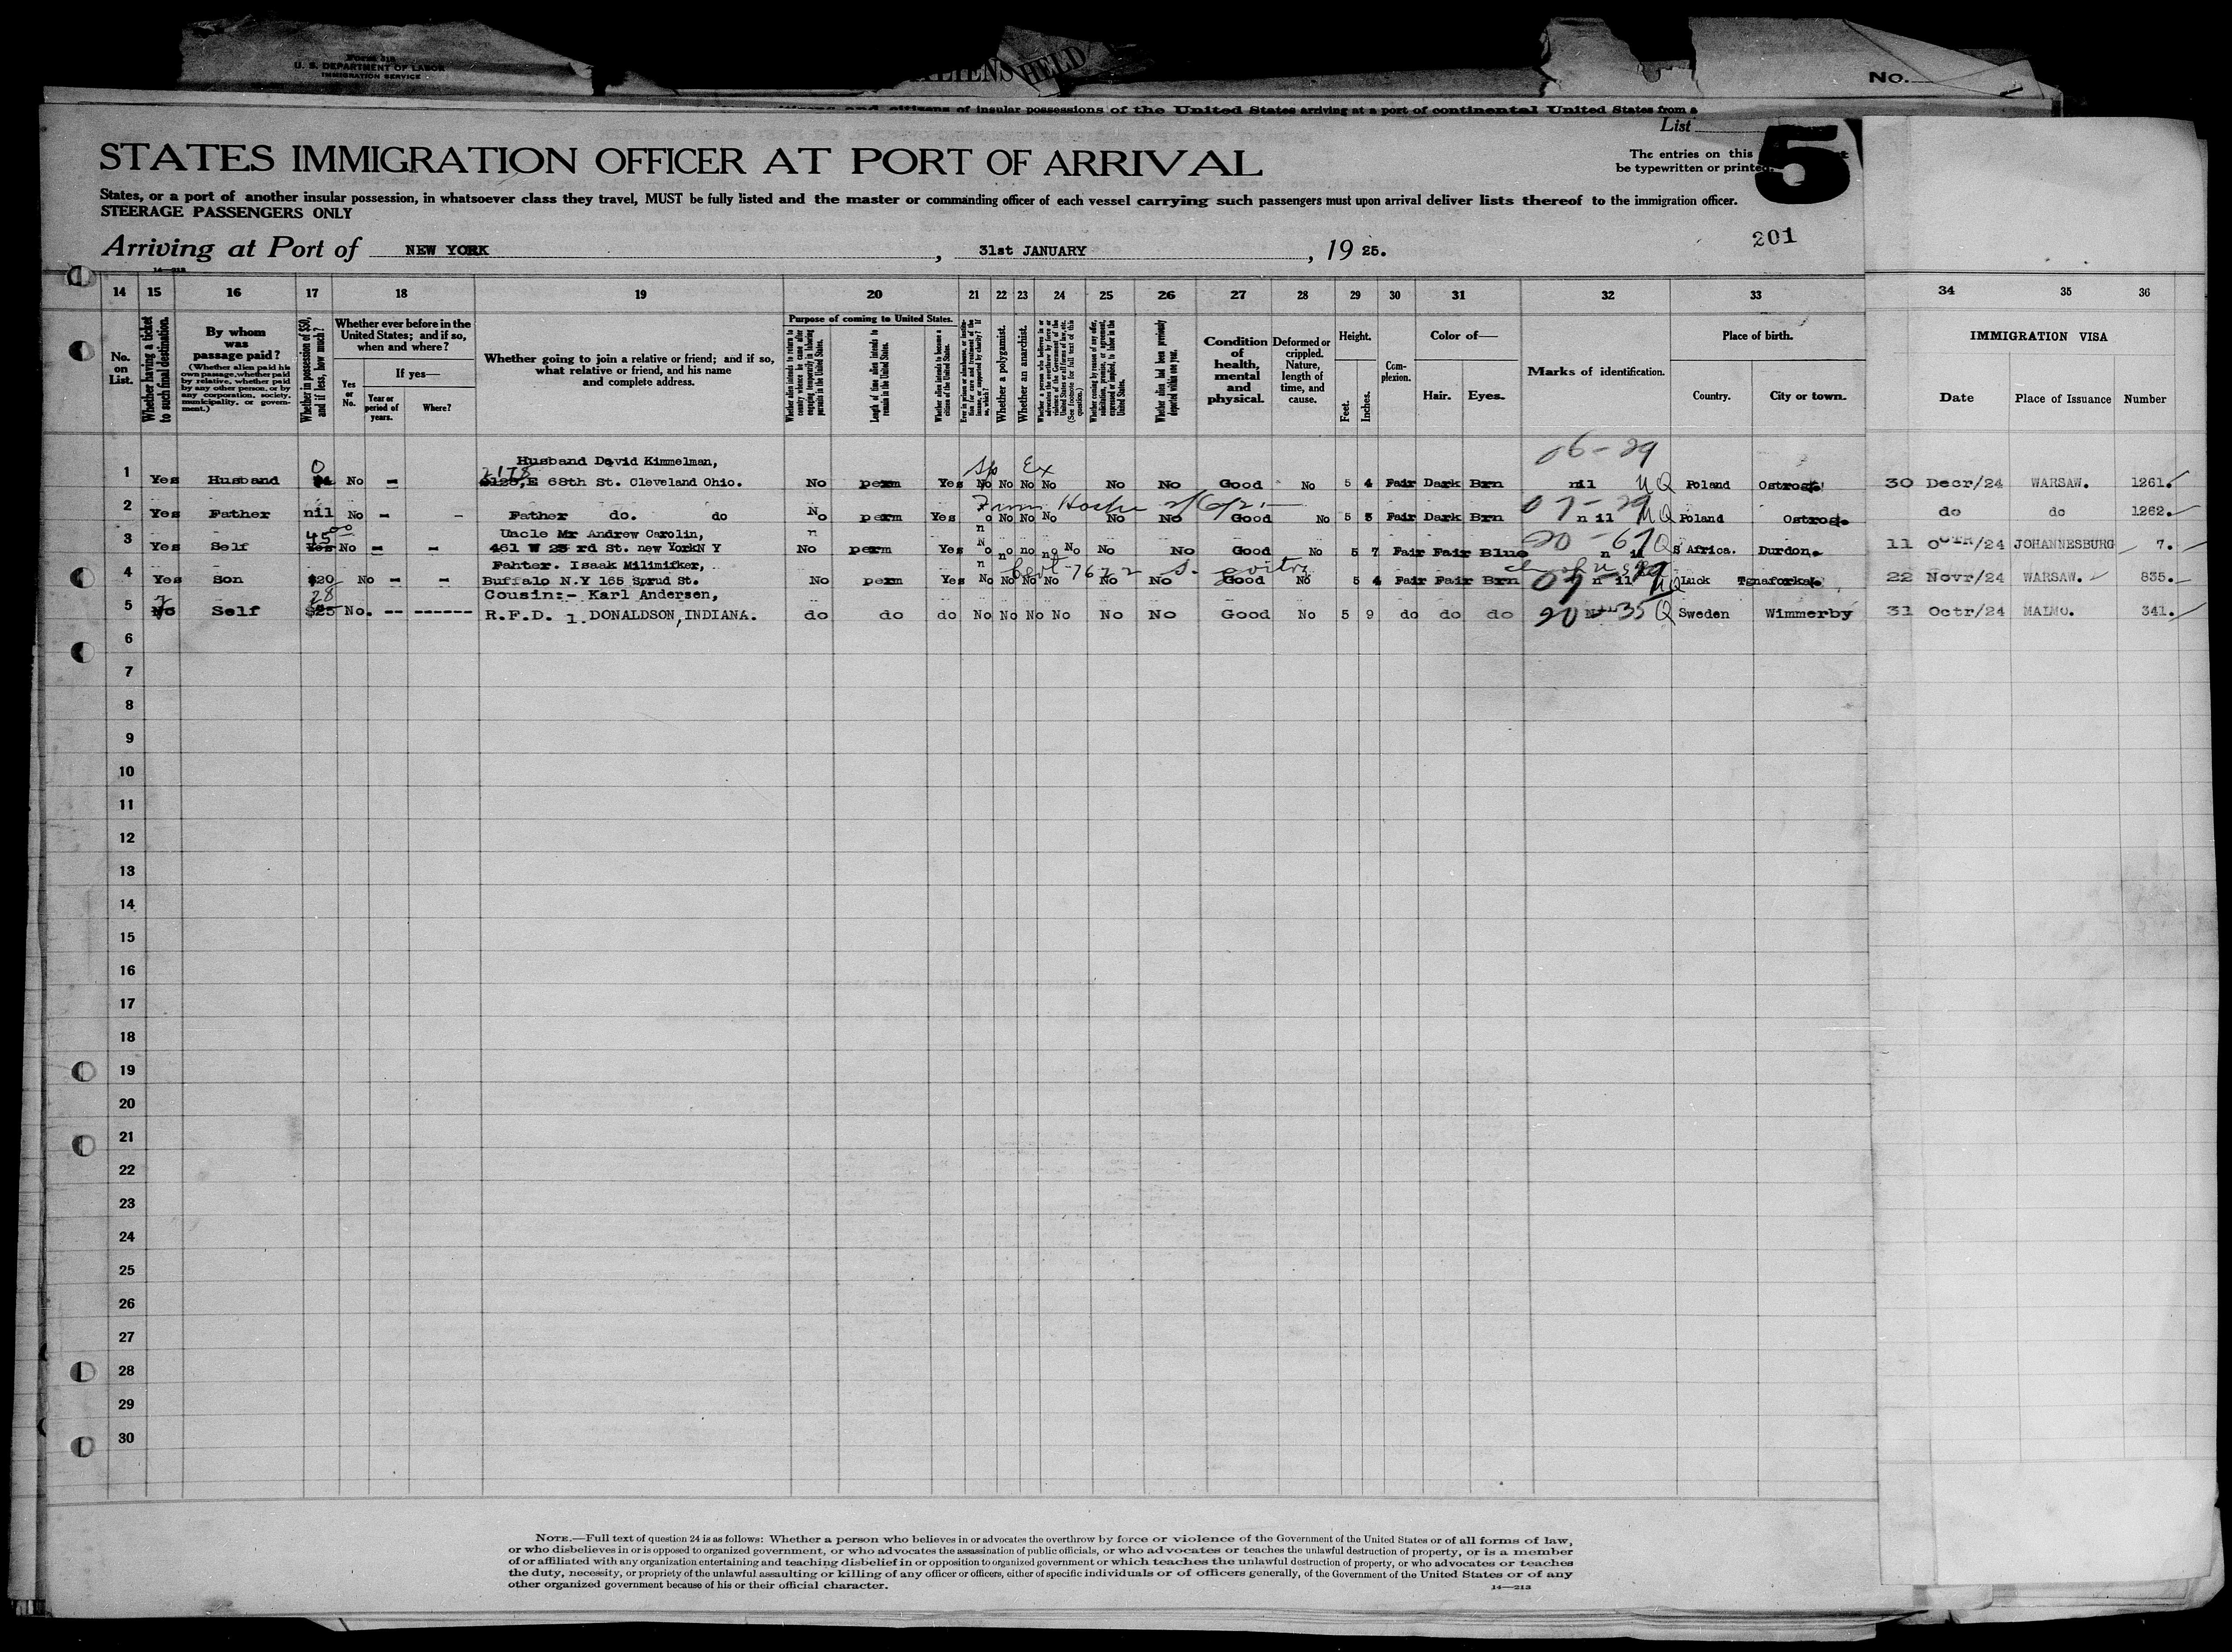 Form 218
U. S. DEPARTMENT OF LABOR
IMMIGRATION SERVICE
ALIENS HELD
No.
citizens and citizens of insular possessions of the United States arriving at a port of continental United States from a
List
5
STATES IMMIGRATION OFFICER AT PORT OF ARRIVAL
The entries on this
be typewritten or printed.
States, or a port of another insular possession, in whatsoever class they travel, MUST be fully listed and the master or commanding officer of each vessel carrying such passengers must upon arrival deliver lists thereof to the immigration officer.
STEERAGE PASSENGERS ONLY
201
Arriving at Port of NEW YORK, 31st JANUARY, 19 25.
14—213
14 15 16 17 18 19 20 21 22 23 24 25 26 27 28 29 30 31 32 33 34 35 36
No. on List.
Whether having a ticket to such final destination.
By whom was passage paid?
(Whether alien paid his own passage, whether paid by relative, whether paid by any other person, or by any corporation, society, municipality, or government.)
Whether in possession of $50, and if less, how much?
Whether ever before in the United States; and if so, when and where?
Yes or No.
If yes—
Year or period of years.
Where?
Whether going to join a relative or friend; and if so, what relative or friend, and his name and complete address.
Purpose of coming to United States.
Whether alien intends to return to country whence he came after engaging temporarily in laboring pursuits in the United States.
Length of time alien intends to remain in the United States.
Whether alien intends to become a citizen of the United States.
Whether a polygamist.
Whether an anarchist.
Whether alien had been previously deported within one year.
Condition of health, mental and physical.
Deformed or crippled. Nature, length of time, and cause.
Height.
Feet.
Inches.
Complexion.
Color of—
Hair.
Eyes.
Marks of identification.
Place of birth.
Country.
City or town.
IMMIGRATION VISA
Date
Place of Issuance
Number
Husband David Kimmelman, 06-29
1 Yes Husband 0 No - 2178 E 68th St. Cleveland Ohio. No perm Yes Sp Ex No No No No No No Good 5 4 Fair Dark Brn nil Poland Ostrog 30 Decr/24 WARSAW. 1261.
2 Yes Father nil No - - Father do. do No perm Yes No No No No No No Good No 5 3 Fair Dark Brn 07-29 nil Poland Ostrog. do do 1262.
Uncle Mr Andrew Carolin,
3 Yes Self 45 00 Yes No - - 461 W 25 rd St. new York N Y No perm Yes No no no no No No No Good No 5 7 Fair Fair Blue 20-67 nil Q S Africa. Durdon. 11 /24 JOHANNESBURG 7.
Fahter. Isaak Milimifker,
4 Yes Son $20 No - - Buffalo N.Y 165 Sprud St. No perm Yes No No No No No No Good No 5 4 Fair Fair Brn nil Luck 22 Novr/24 WARSAW. 835.
Cousin:- Karl Andersen,
5 No Self 28 $25 No. -- ------ R.F.D. 1. DONALDSON, INDIANA. do do do No No No No No No Good No 5 9 do do do 20 35 Q Sweden Wimmerby 31 Octr/24 MALMO. 341.
6
7
8
9
10
11
12
13
14
15
16
17
18
19
20
21
22
23
24
25
26
27
28
29
30
NOTE.—Full text of question 24 is as follows: Whether a person who believes in or advocates the overthrow by force or violence of the Government of the United States or of all forms of law,
or who disbelieves in or is opposed to organized government, or who advocates the assassination of public officials, or who advocates or teaches the unlawful destruction of property, or is a member
of or affiliated with any organization entertaining and teaching disbelief in or opposition to organized government or which teaches the unlawful destruction of property, or who advocates or teaches
the duty, necessity, or propriety of the unlawful assaulting or killing of any officer or officers, either of specific individuals or of officers generally, of the Government of the United States or of any
other organized government because of his or their official character.
14—213